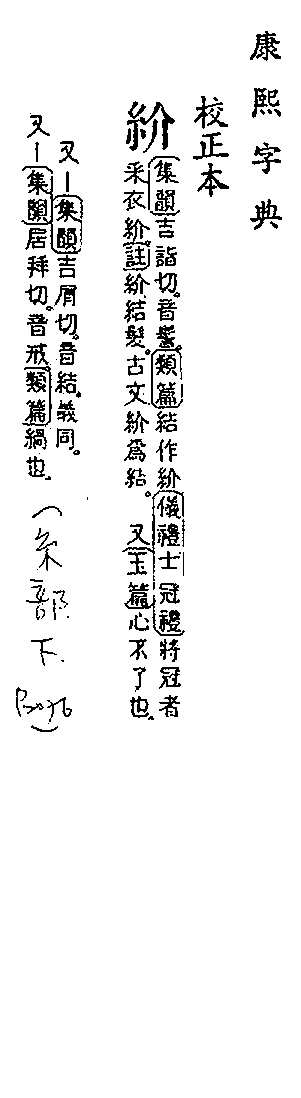 康熙字典
校正本
紒
集韻吉詣切。音髻。類篇結作紒儀禮士冠禮將冠者
采衣紒。註紒結髮。古文紒爲結。又玉篇心不了也。
又一集韻吉屑切。音結。義同。
又一集韻居拜切。音戒類篇緺也。
(糸部下.